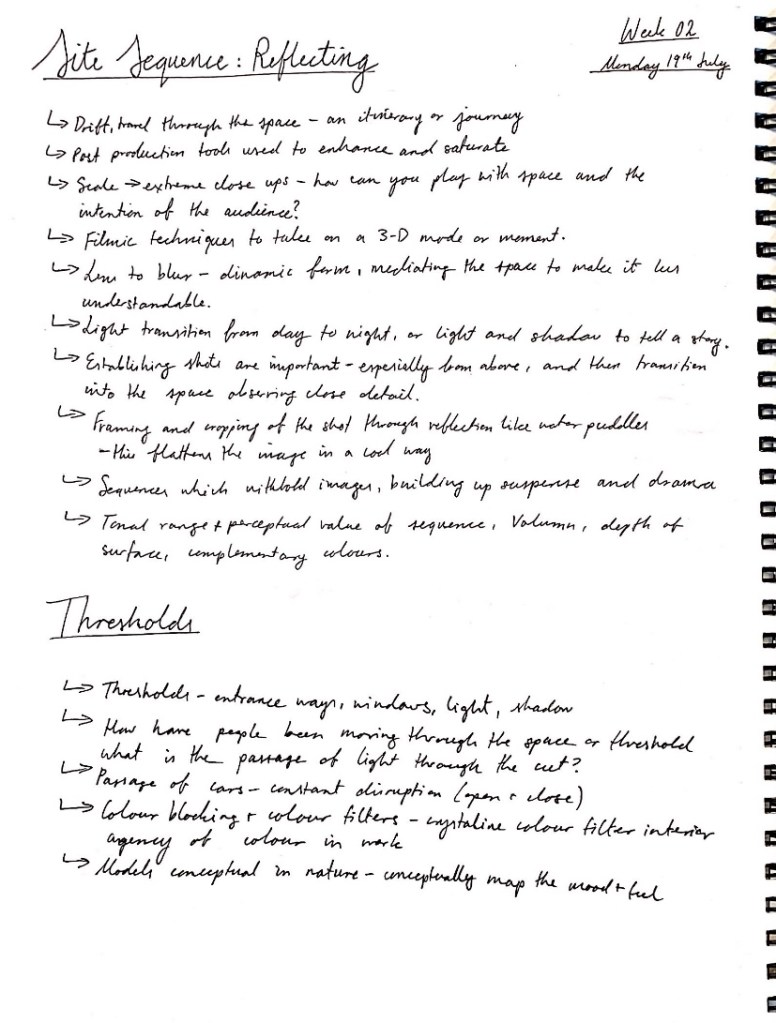 Week 02
Site Sequence: Reflecting
Monday 19th July
↳ Drift, travel through the space – an itinerary or journey
↳ Post production tools used to enhance and saturate
↳ Scale → extreme close ups – how can you play with space and the
intention of the audience?
↳ Filmic techniques to take on a 3-D mode or moment.
↳ Lens to blur – dinamic form, mediating the space to make it less
understandable.
↳ Light transition from day to night, or light and shadow to tell a story.
↳ Establishing shots are important – especially from above, and then transition
into the space observing close detail.
↳ Framing and cropping of the shot through reflection like water puddles
– this flattens the image in a cool way
↳ Sequences which withhold images, building up suspense and drama
↳ Tonal range + perceptual value of sequence, Volumn, depth of
surface, complementary colours.
Thresholds
↳ Thresholds – entrance ways, windows, light, shadow
↳ How have people been moving through the space or threshold
what is the passage of light through the cut?
↳ Passage of cars – constant disruption (open + close)
↳ Colour blocking + colour filters – crystaline colour filter interior
agency of colour in work
↳ Models conceptual in nature – conceptually map the mood + feel